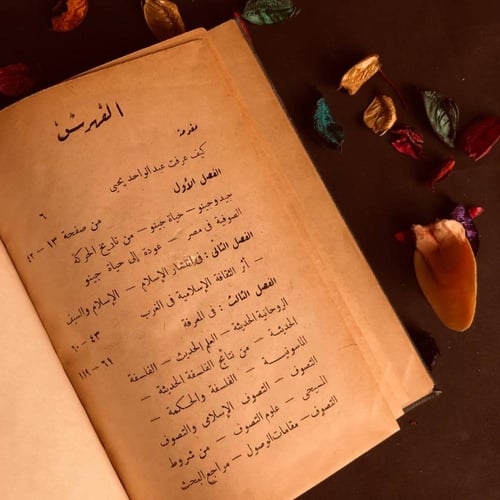 الفهرس
مقدمة
كيف عرفت عبد الواحد يحيى ٦
الفصل الأول
جينو وجينو — حياة جينو — من تاريخ الحركة من صفحة ١٣ – ٤٢
الصوفية في مصر — عودة إلى حياة جينو
الفصل الثاني : في انتشار الإسلام — الإسلام والسيف
— أثر الثقافة الإسلامية في الغرب ٤٣ – ٦٠
الفصل الثالث : في المعرفة ٦١ – ١١٩
الروحانية الحديثة — العلم الحديث — الفلسفة
الحديثة — من نتائج الفلسفة الحديثة —
الماسونية — الفلسفة والحكمة —
التصوف — التصوف الإسلامي والتصوف
المسيحي — علوم التصوف — من شروط
التصوف — مقامات الوصول — مراجع البحث